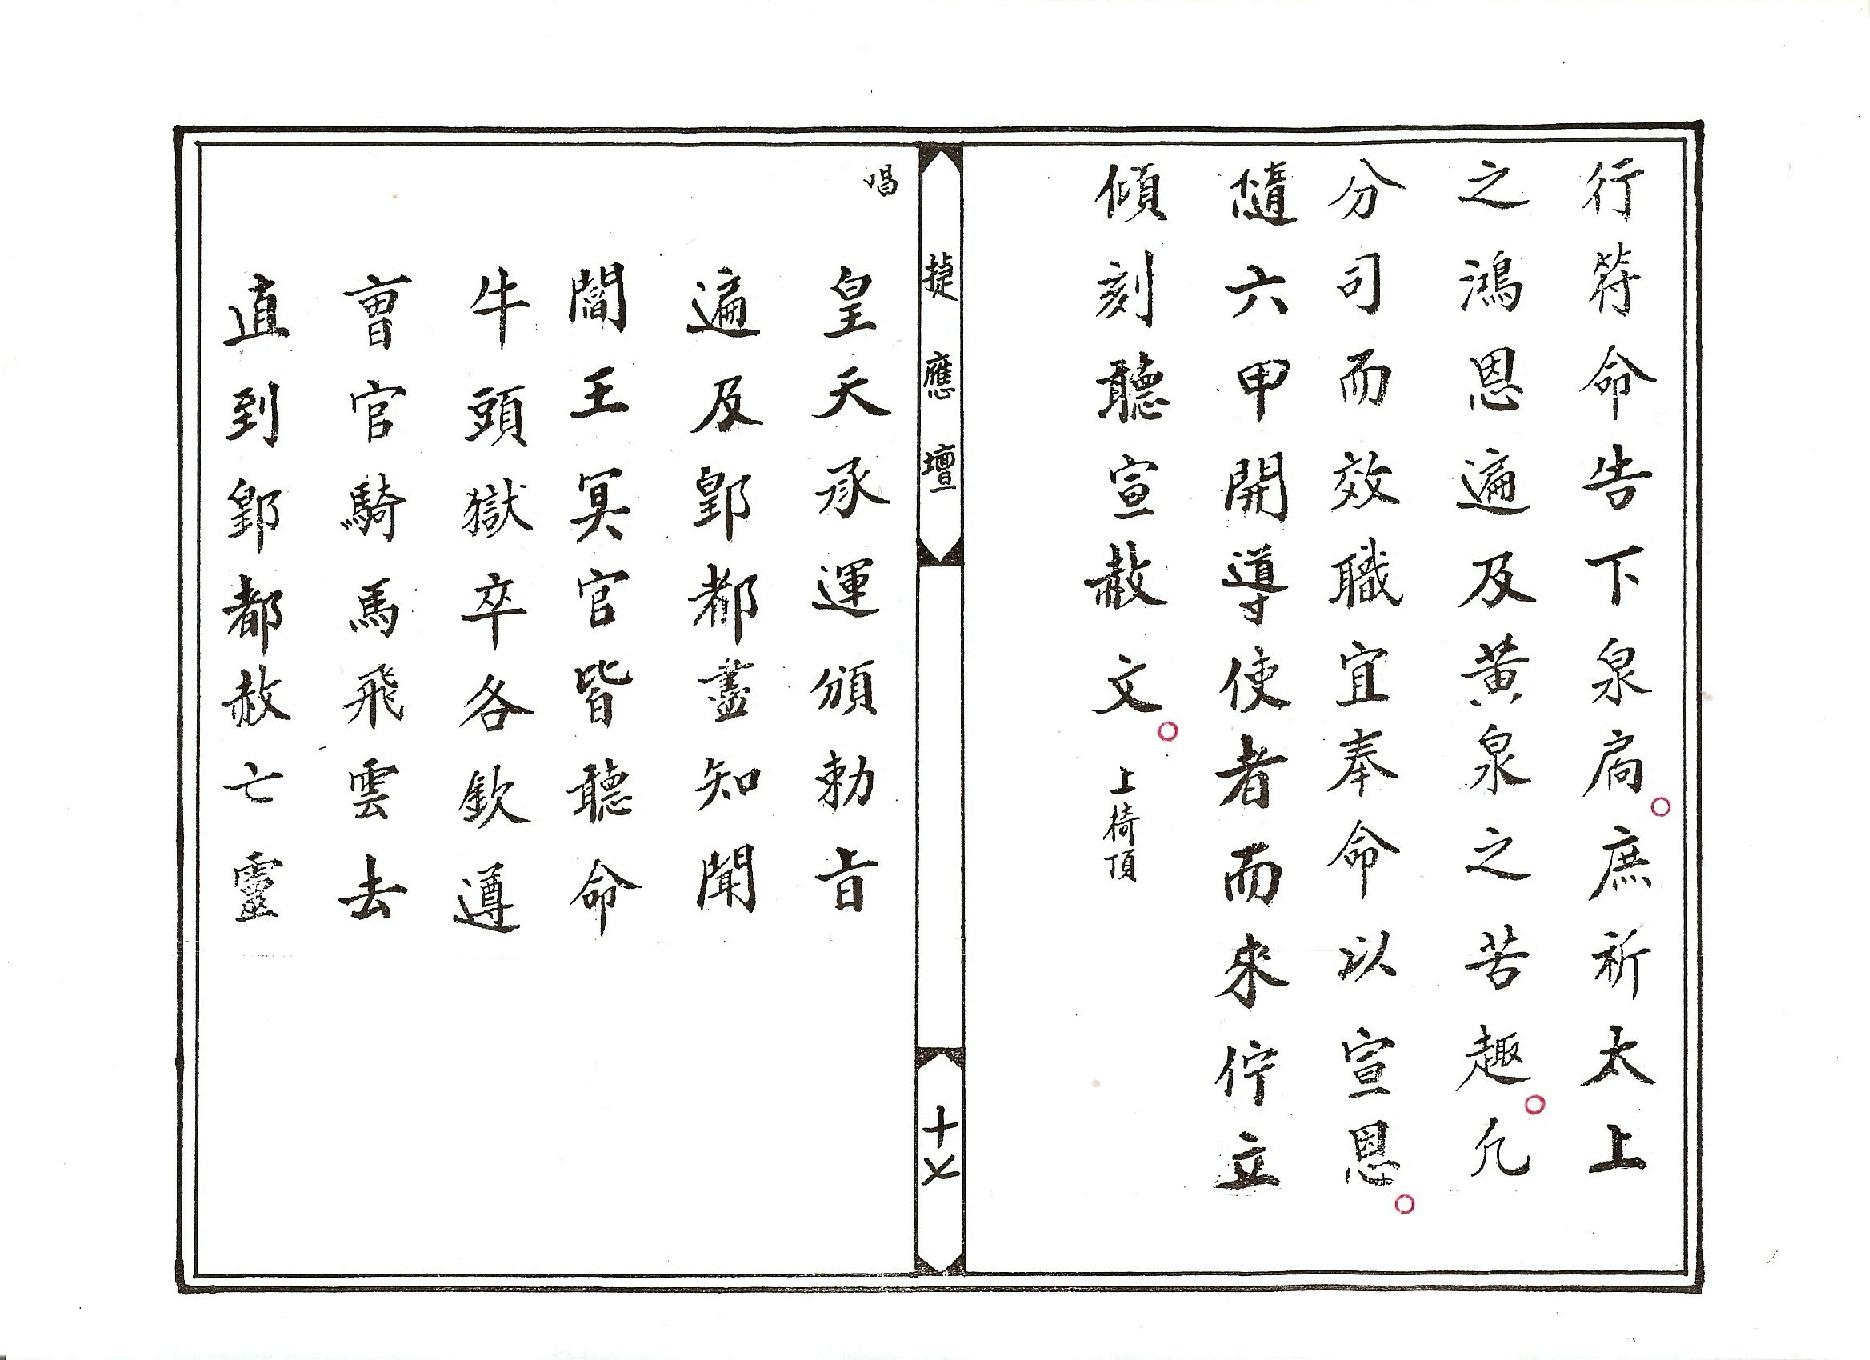 行符命告下泉扃庶祈太上
之鴻恩遍及黃泉之苦趣凢
分司而效職宜奉命以宣恩
隨六甲開導使者而來佇立
傾刻聽宣赦文 上椅頂
捷應壇
十七
唱
皇天承運頒勅旨
遍及酆都盡知聞
閻王冥官皆聽命
牛頭獄卒各欽遵
曺官騎馬飛雲去
直到酆都赦亡靈